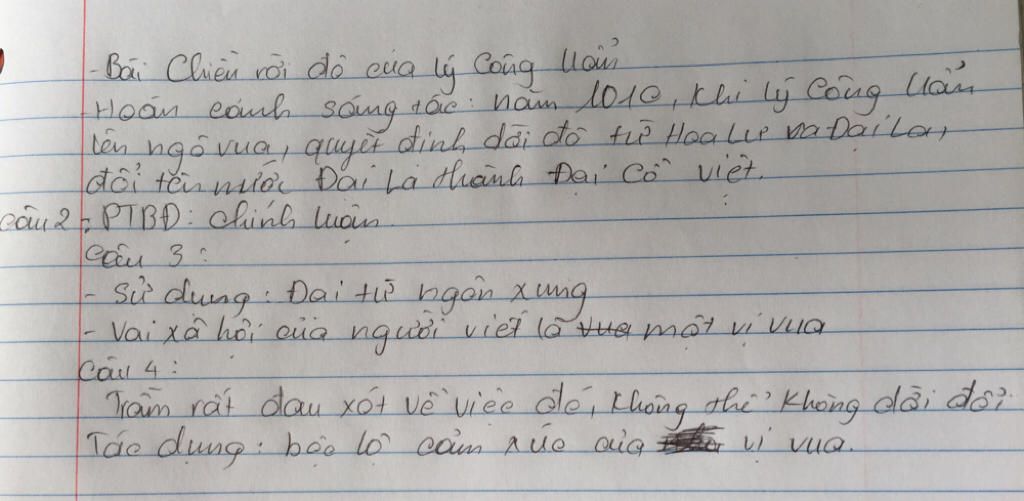 - Bài Chiếu rời đô của Lý Công Uẩn
Hoàn cảnh sáng tác: năm 1010, khi Lý Công Uẩn
lên ngôi vua, quyết định dời đô từ Hoa Lư ra Đại La,
đổi tên nước Đại La thành Đại Cồ Việt.
Câu 2: PTBĐ: Chính luận
Câu 3:
- Sử dụng: Đại từ ngôn xưng
- Vai xã hội của người viết là vua một vị vua
Câu 4:
Trẫm rất đau xót về việc đó, không thể không dời đổi
Tác dụng: bộc lộ cảm xúc của vị vua.